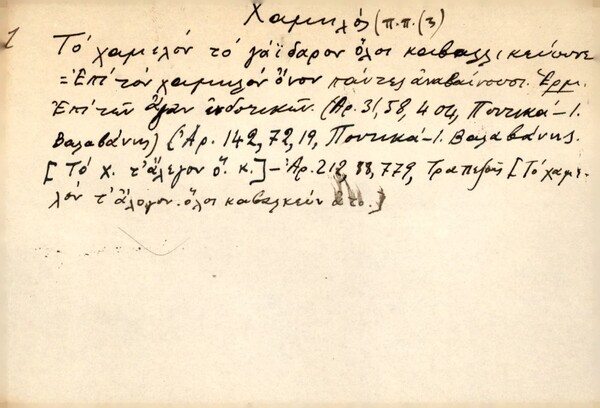 1
Χαμηλός (π.π.(3)
Τό χαμελόν τό γαΐδαρον ὅλοι καβαλλικεύουνε
= Ἐπί τόν χαμηλόν ὄνον πάντες ἀναβαίνουσι. Ἑρμ.
Ἐπί τῶν ἄγαν ἐνδοτικῶν. (Ἀρ. 31, 58, 4 Ποντικά - Ι.
Βαλαβάνης) (Ἀρ. 142, 72, 19, Ποντικά - Ι. Βαλαβάνης.
[Τό χ. τ' ἄλεγον ὅ. κ.] - Ἀρ. 212, 88, 779, Τραπεζοῦς [Τό χαμε-
λόν τ' ἄλογον ὅλοι καβαλκεύν